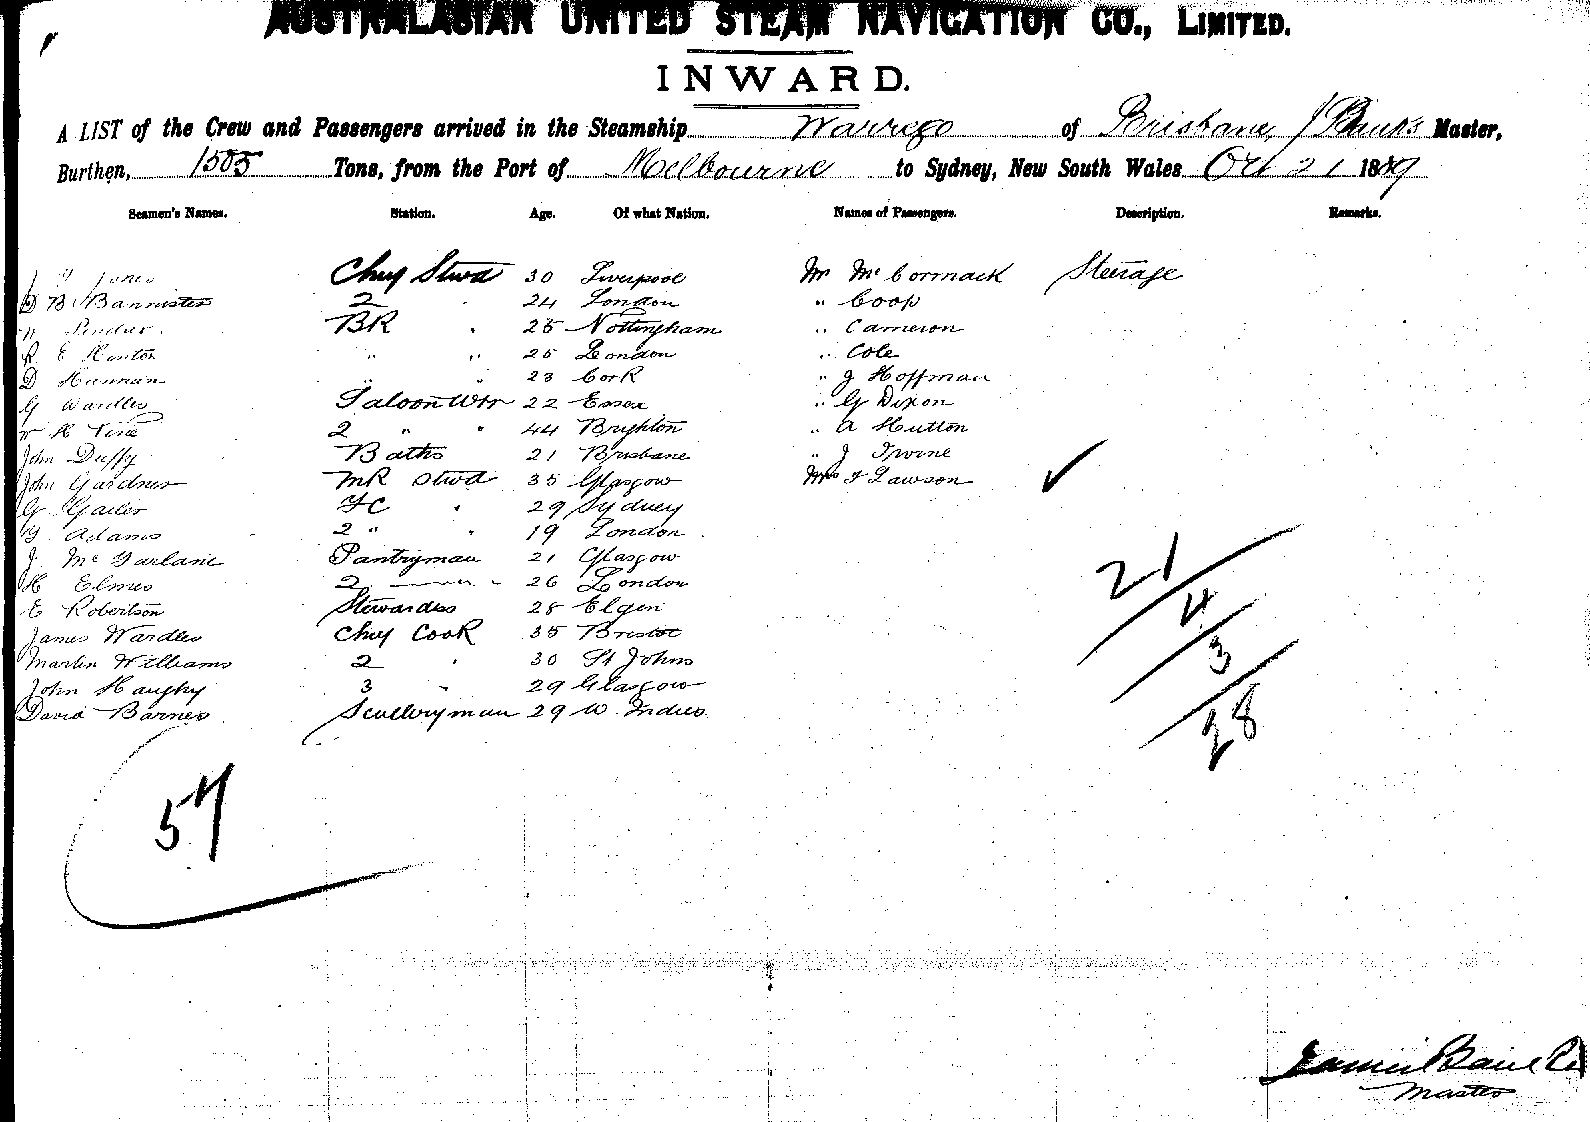 AUSTRALASIAN UNITED STEAM NAVIGATION CO., LIMITED.
INWARD.
A LIST of the Crew and Passengers arrived in the Steamship Warrego of Brisbane, J Banks Master,
Burthen, 1505 Tons, from the Port of Melbourne to Sydney, New South Wales Oct 21 1889
Seamen's Names. Station. Age. Of what Nation. Names of Passengers. Description. Remarks.
Jones Chief Stwd 30 Liverpool Mr McCormack Steerage
B Bannister 2 " 24 London " Coop
BR " 25 Nottingham " Cameron
R E Hunton " " 25 London " Cole
D Hannan " " 23 Cork " J Hoffman
G Wardles Saloon Wtr 22 Essex " G Dixon
W H Vine 2 " " 44 Brighton " A Hutton
John Duffy Baths 21 Brisbane " J Irvine
John Gardner MR Stwd 35 Glasgow Mrs F Lawson
G Gailer FC " 29 Sydney
G Adams 2 " " 19 London
J McFarlane Pantryman 21 Glasgow
H Elmes 2 " 26 London
E Robertson Stewardess 28 Elgin
James Wardles Chief Cook 35 Bristol
Martin Williams 2 " 30 St Johns
John Haughy 3 " 29 Glasgow
David Barnes Sculleryman 29 W. Indies
21
4
3
28
57
James Banks
Master